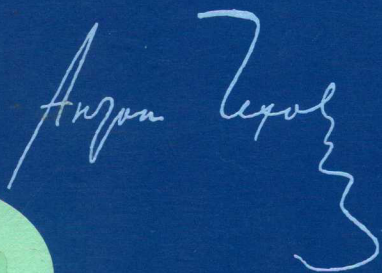 Антон Чехов